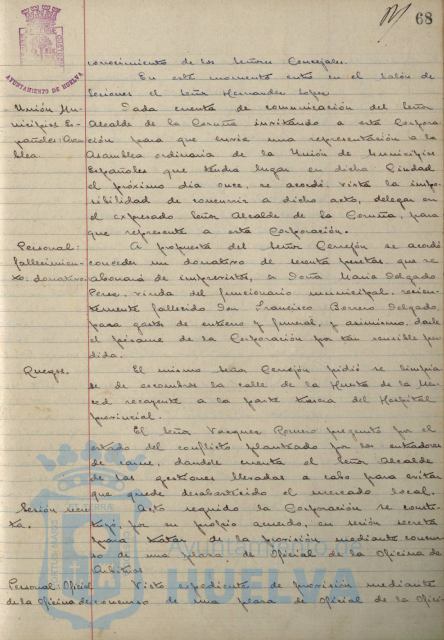 68
AYUNTAMIENTO DE HUELVA
conocimiento de los Señores Concejales.
En este momento entra en el salón de
Sesiones el Señor Hernandez López.
Unión Mu-
nicipios Es-
pañoles: Asam
blea.
Dada cuenta de comunicación del Señor
Alcalde de la Coruña invitando a esta Corpora-
ción para que envíe una representación a la
Asamblea ordinaria de la Unión de Municipios
Españoles que tendra lugar en dicha Ciudad
el próximo dia once, se acordó, vista la impo-
sibilidad de concurrir a dicho acto, delegar en
el expresado Señor Alcalde de la Coruña, para
que represente a esta Corporación.
Personal:
fallecimien-
to: donativo.
A propuesta del Señor Cerejón se acordó
conceder un donativo de pesetas, que se
abonará de imprevistos, a Doña Maria Delgado
viuda del funcionario municipal, recien-
temente fallecido Don Francisco Borrero Delgado,
para gastos de entierro y funeral, y asimismo, darle
el pésame de la Corporación por tan sensible per-
dida.
Ruegos.
El mismo Señor Cerejón pidió se limpia-
se de escombros la calle de la Huerta de la Mer-
ced recayente a la parte trasera del Hospital
provincial.
El Señor Vazquez Romero preguntó por el
estado del conflicto planteado por los entradores
de carne, dandole cuenta el Señor Alcalde
de las gestiones llevadas a cabo para evitar
que quede desabastecido el mercado local.
Sesión secre
ta.
Acto seguido la Corporación se consti-
tuyó, por su propio acuerdo, en sesión secreta
para tratar de la provisión mediante concur-
so de una plaza de Oficial de la Oficina de
Arbitrios
Personal: Oficial
de la Oficina de
Visto expediente de provisión mediante
concurso de una plaza de Oficial de la Ofici-
Ayuntamiento de
HUELVA